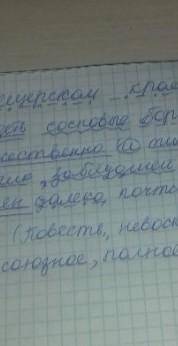 щерском крае
сосновые бор
жественно и ти
заблудшей
далеко, почт
(Повесть, невоск
союзное, полно